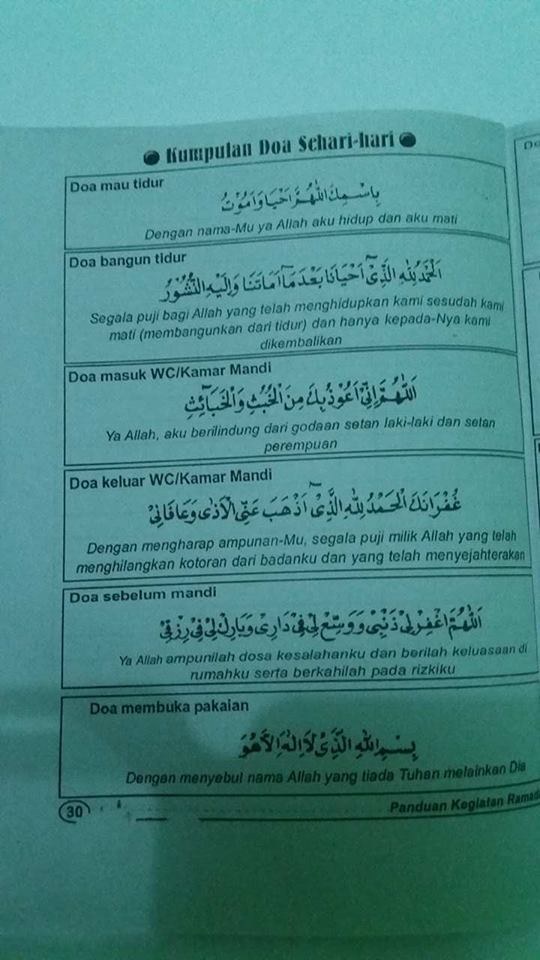 Kumpulan Doa Sehari-hari
Doa mau tidur
بِاسْمِكَ اللّٰهُمَّ اَحْيَا وَاَمُوْتُ
Dengan nama-Mu ya Allah aku hidup dan aku mati
Doa bangun tidur
اَلْحَمْدُ لِلّٰهِ الَّذِيْٓ اَحْيَانَا بَعْدَ مَآ اَمَاتَنَا وَاِلَيْهِ النُّشُوْرُ
Segala puji bagi Allah yang telah menghidupkan kami sesudah kami
mati (membangunkan dari tidur) dan hanya kepada-Nya kami
dikembalikan
Doa masuk WC/Kamar Mandi
اَللّٰهُمَّ اِنِّيْٓ اَعُوْذُبِكَ مِنَ الْخُبُثِ وَالْخَبَآئِثِ
Ya Allah, aku berilindung dari godaan setan laki-laki dan setan
perempuan
Doa keluar WC/Kamar Mandi
غُفْرَانَكَ الْحَمْدُ لِلّٰهِ الَّذِيْٓ اَذْهَبَ عَنِّي الْاَذٰى وَعَافَانِيْ
Dengan mengharap ampunan-Mu, segala puji milik Allah yang telah
menghilangkan kotoran dari badanku dan yang telah menyejahterakan
Doa sebelum mandi
اَللّٰهُمَّ اغْفِرْلِيْ ذَنْبِيْ وَوَسِّعْ لِيْ فِيْ دَارِيْ وَبَارِكْ لِيْ فِيْ رِزْقِيْ
Ya Allah ampunilah dosa kesalahanku dan berilah keluasaan di
rumahku serta berkahilah pada rizkiku
Doa membuka pakaian
بِسْمِ اللّٰهِ الَّذِيْ لَا اِلٰهَ اِلَّا هُوَ
Dengan menyebut nama Allah yang tiada Tuhan melainkan Dia
30
Panduan Kegiatan Ramad